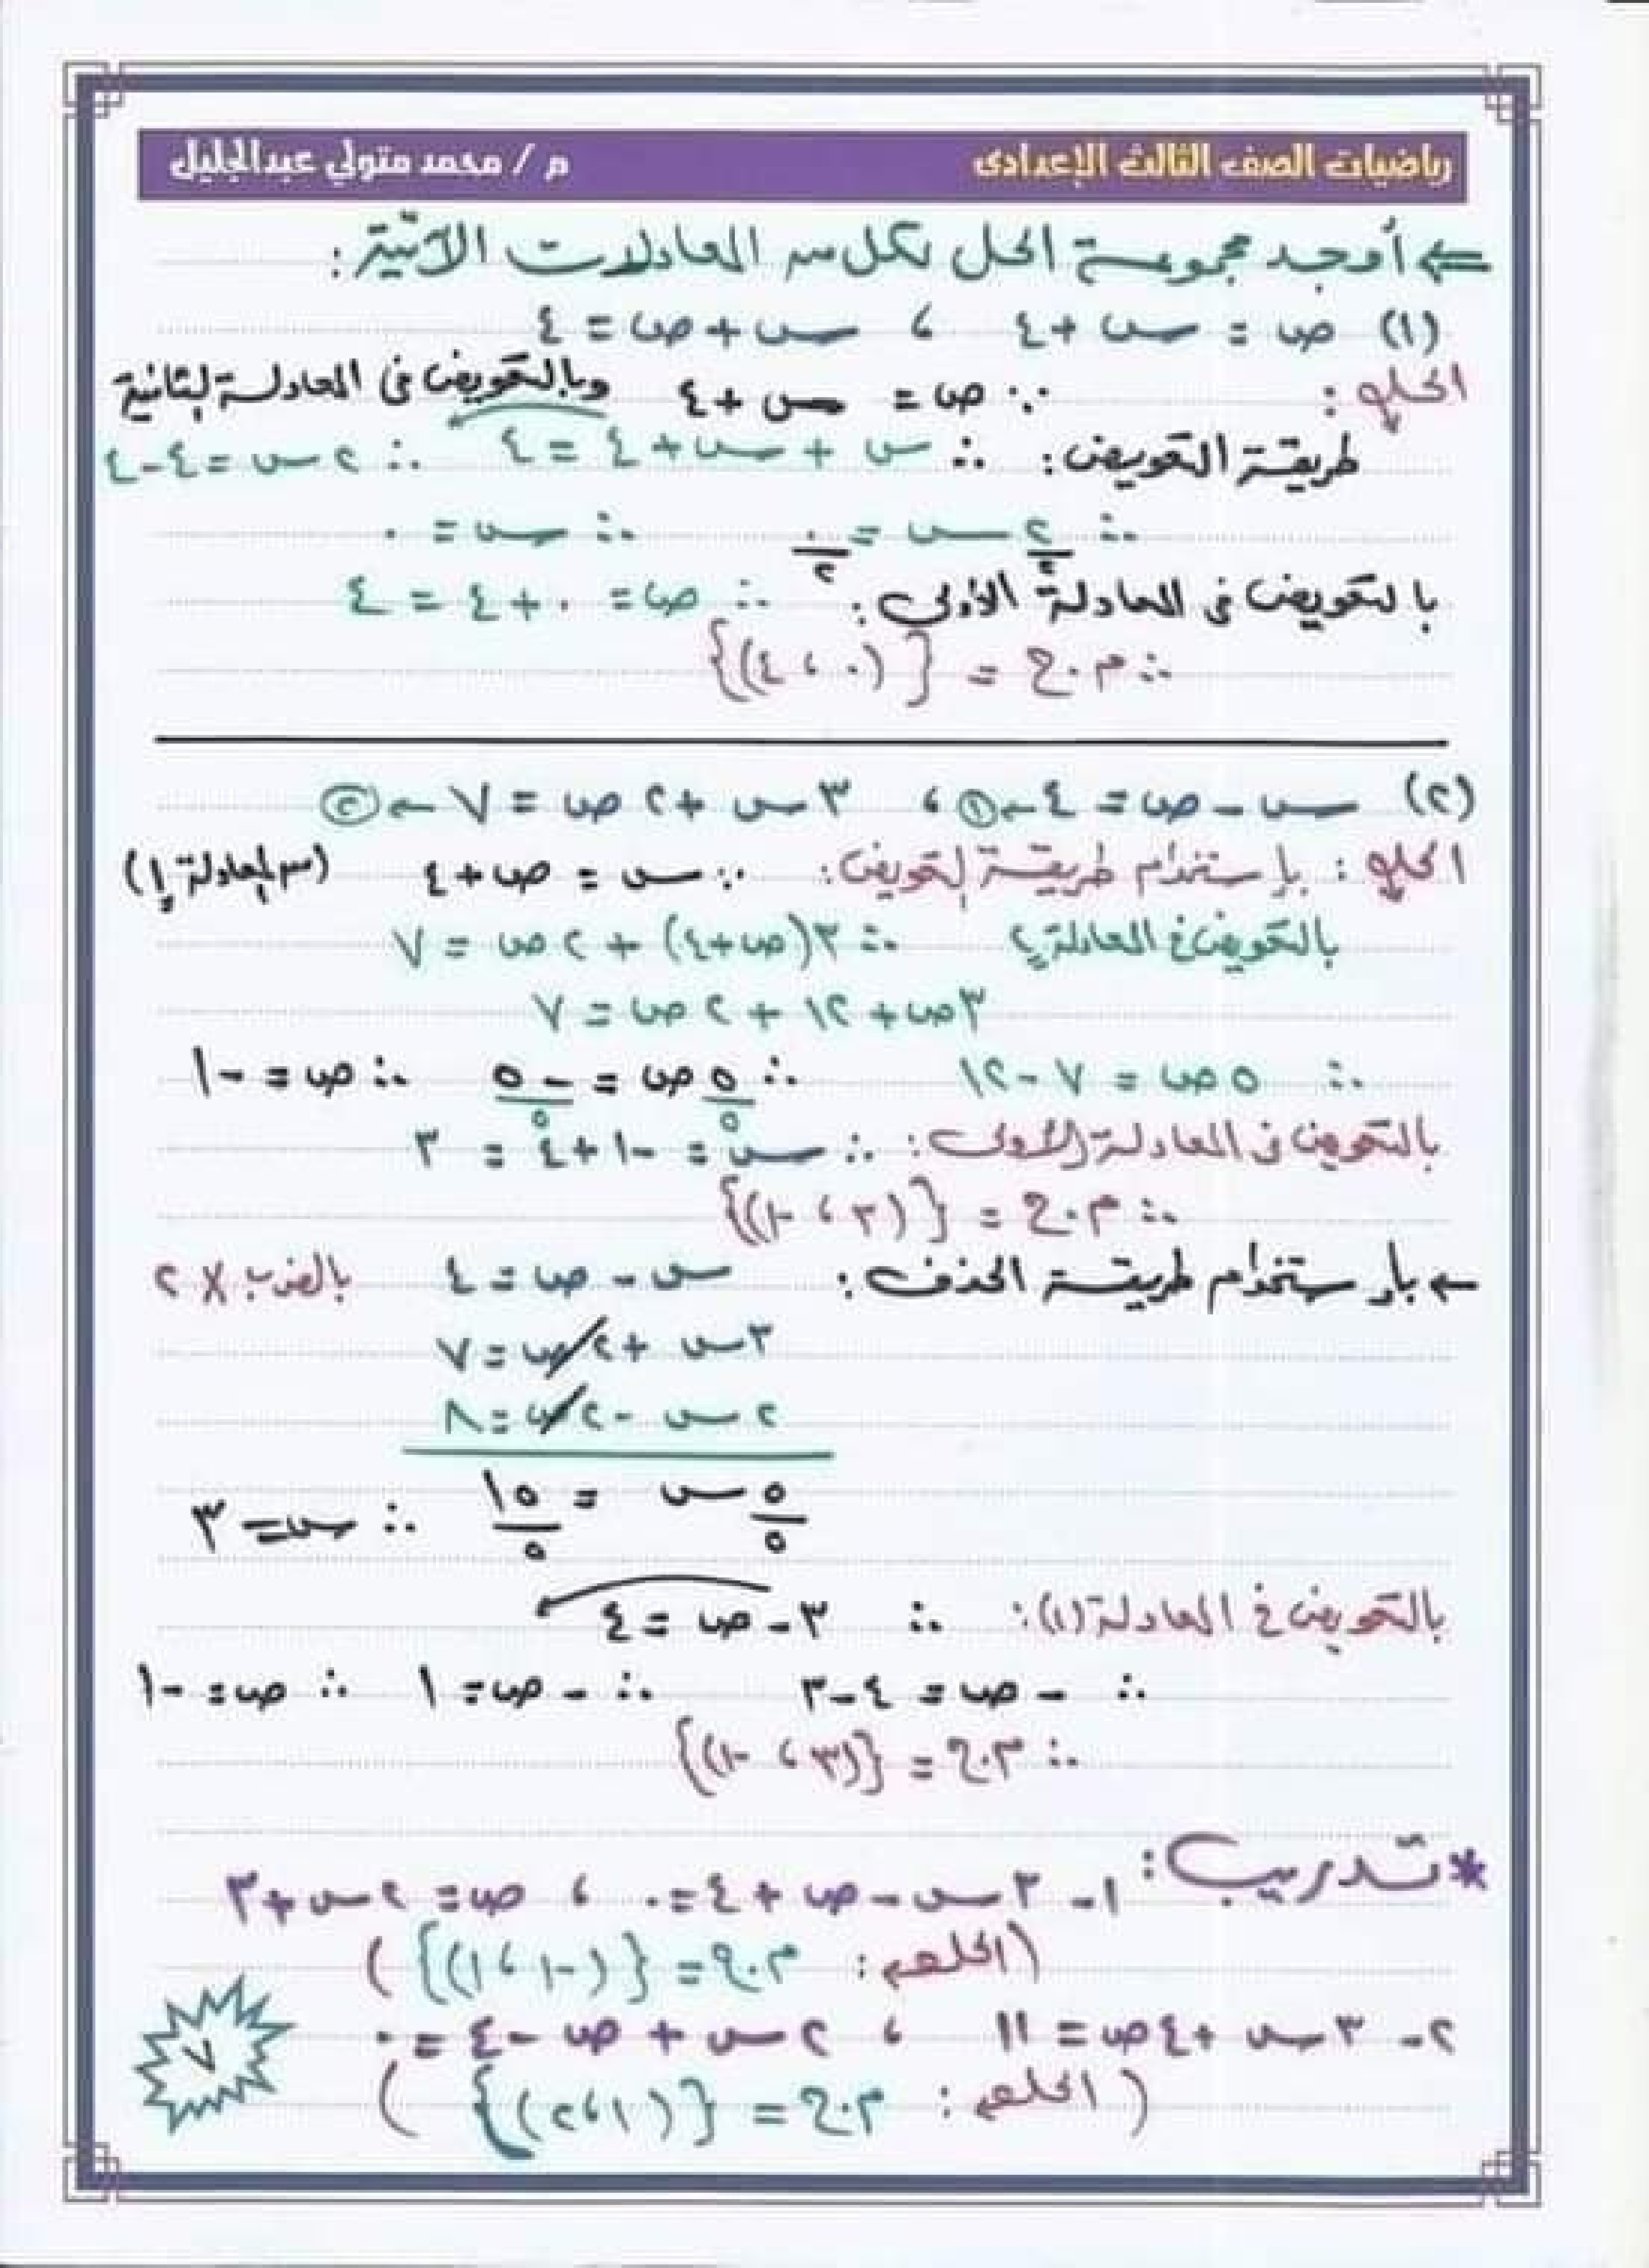 رياضيات الصف الثالث الإعدادى م / محمد متولي عبدالجليل
⇐ أوجد مجموعة الحل لكل من المعادلات الآتية :
(١) ص = س + ٤ ، س + ص = ٤
الحل : ∵ ص = س + ٤ وبالتعويض فى المعادلة الثانية
طريقة التعويض : ∴ س + س + ٤ = ٤ ∴ ٢ س = ٤ - ٤
∴ ٢ س / ٢ = ٠ / ٢ ∴ س = ٠
بالتعويض فى المعادلة الأولى : ∴ ص = ٠ + ٤ = ٤
∴ م.ح = {(٠ ، ٤)}
(٢) س - ص = ٤ ← ① ، ٣ س + ٢ ص = ٧ ← ②
الحل : بإستخدام طريقة التعويض : ∵ س = ص + ٤ (من المعادلة ١)
بالتعويض فى المعادلة ٢ ∴ ٣(ص + ٤) + ٢ ص = ٧
٣ ص + ١٢ + ٢ ص = ٧
∴ ٥ ص = ٧ - ١٢ ∴ ٥ ص / ٥ = - ٥ / ٥ ∴ ص = -١
بالتعويض فى المعادلة الأولى : ∴ س = -١ + ٤ = ٣
∴ م.ح = {(٣ ، -١)}
← بإستخدام طريقة الحذف : س - ص = ٤ بالضرب × ٢
٣ س + ٢ ص = ٧
٢ س - ٢ ص = ٨
٥ س / ٥ = ١٥ / ٥ ∴ س = ٣
بالتعويض فى المعادلة (١) : ∴ ٣ - ص = ٤
∴ - ص = ٤ - ٣ ∴ - ص = ١ ∴ ص = -١
∴ م.ح = {(٣ ، -١)}
* تدريب : ١- ٣ س - ص + ٤ = ٠ ، ص = ٢ س + ٣
(الحل : م.ح = {(-١ ، ١)} )
٢- ٣ س + ٤ ص = ١١ ، ٢ س + ص - ٤ = ٠
(الحل : م.ح = {(١ ، ٢)} )
٧